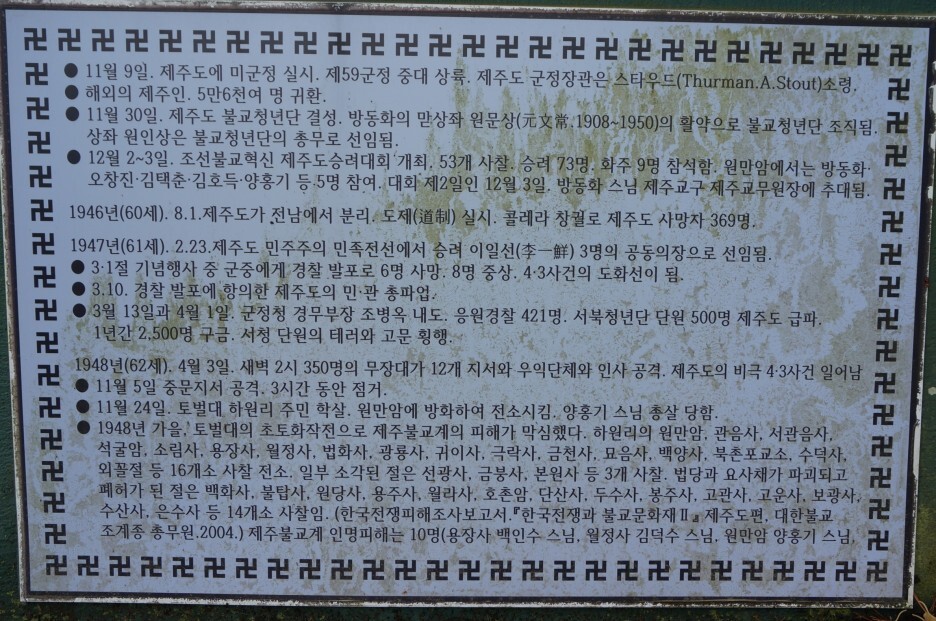 ● 11월 9일. 제주도에 미군정 실시. 제59군정 중대 상륙. 제주도 군정장관은 스타우드(Thurman.A.Stout)소령.
● 해외의 제주인. 5만6천여 명 귀환.
● 11월 30일. 제주도 불교청년단 결성. 방동화의 맏상좌 원문상(元文常.1908~1950)의 활약으로 불교청년단 조직됨.
상좌 원인상은 불교청년단의 총무로 선임됨.
● 12월 2~3일. 조선불교혁신 제주도승려대회 개최. 53개 사찰. 승려 73명. 화주 9명 참석함. 원만암에서는 방동화·
오창진·김택춘·김호득·양홍기 등 5명 참여. 대회 제2일인 12월 3일. 방동화 스님 제주교구 제주교무원장에 추대됨.
1946년(60세). 8.1.제주도가 전남에서 분리. 도제(道制) 실시. 콜레라 창궐로 제주도 사망자 369명.
1947년(61세). 2.23.제주도 민주주의 민족전선에서 승려 이일선(李一鮮) 3명의 공동의장으로 선임됨.
● 3·1절 기념행사 중 군중에게 경찰 발포로 6명 사망. 8명 중상. 4·3사건의 도화선이 됨.
● 3.10. 경찰 발포에 항의한 제주도의 민·관 총파업.
● 3월 13일과 4월 1일. 군정청 경무부장 조병옥 내도. 응원경찰 421명. 서북청년단 단원 500명 제주도 급파.
1년간 2,500명 구금. 서청 단원의 테러와 고문 횡행.
1948년(62세). 4월 3일. 새벽 2시 350명의 무장대가 12개 지서와 우익단체와 인사 공격. 제주도의 비극 4·3사건 일어남
● 11월 5일 중문지서 공격. 3시간 동안 점거.
● 11월 24일. 토벌대 하원리 주민 학살. 원만암에 방화하여 전소시킴. 양홍기 스님 총살 당함.
● 1948년 가을, 토벌대의 초토화작전으로 제주불교계의 피해가 막심했다. 하원리의 원만암, 관음사, 서관음사,
석굴암, 소림사, 용장사, 월정사, 법화사, 광룡사, 귀이사, 극락사, 금천사, 묘음사, 백양사, 북촌포교소, 수덕사,
외꼴절 등 16개소 사찰 전소. 일부 소각된 절은 선광사, 금봉사, 본원사 등 3개 사찰. 법당과 요사채가 파괴되고
폐허가 된 절은 백화사, 불탑사, 원당사, 용주사, 월라사, 호촌암, 단산사, 두수사, 봉주사, 고관사, 고운사, 보광사,
수산사, 은수사 등 14개소 사찰임. (한국전쟁피해조사보고서.『한국전쟁과 불교문화재Ⅱ』 제주도편, 대한불교
조계종 총무원.2004.) 제주불교계 인명피해는 10명(용장사 백인수 스님, 월정사 김덕수 스님, 원만암 양홍기 스님,